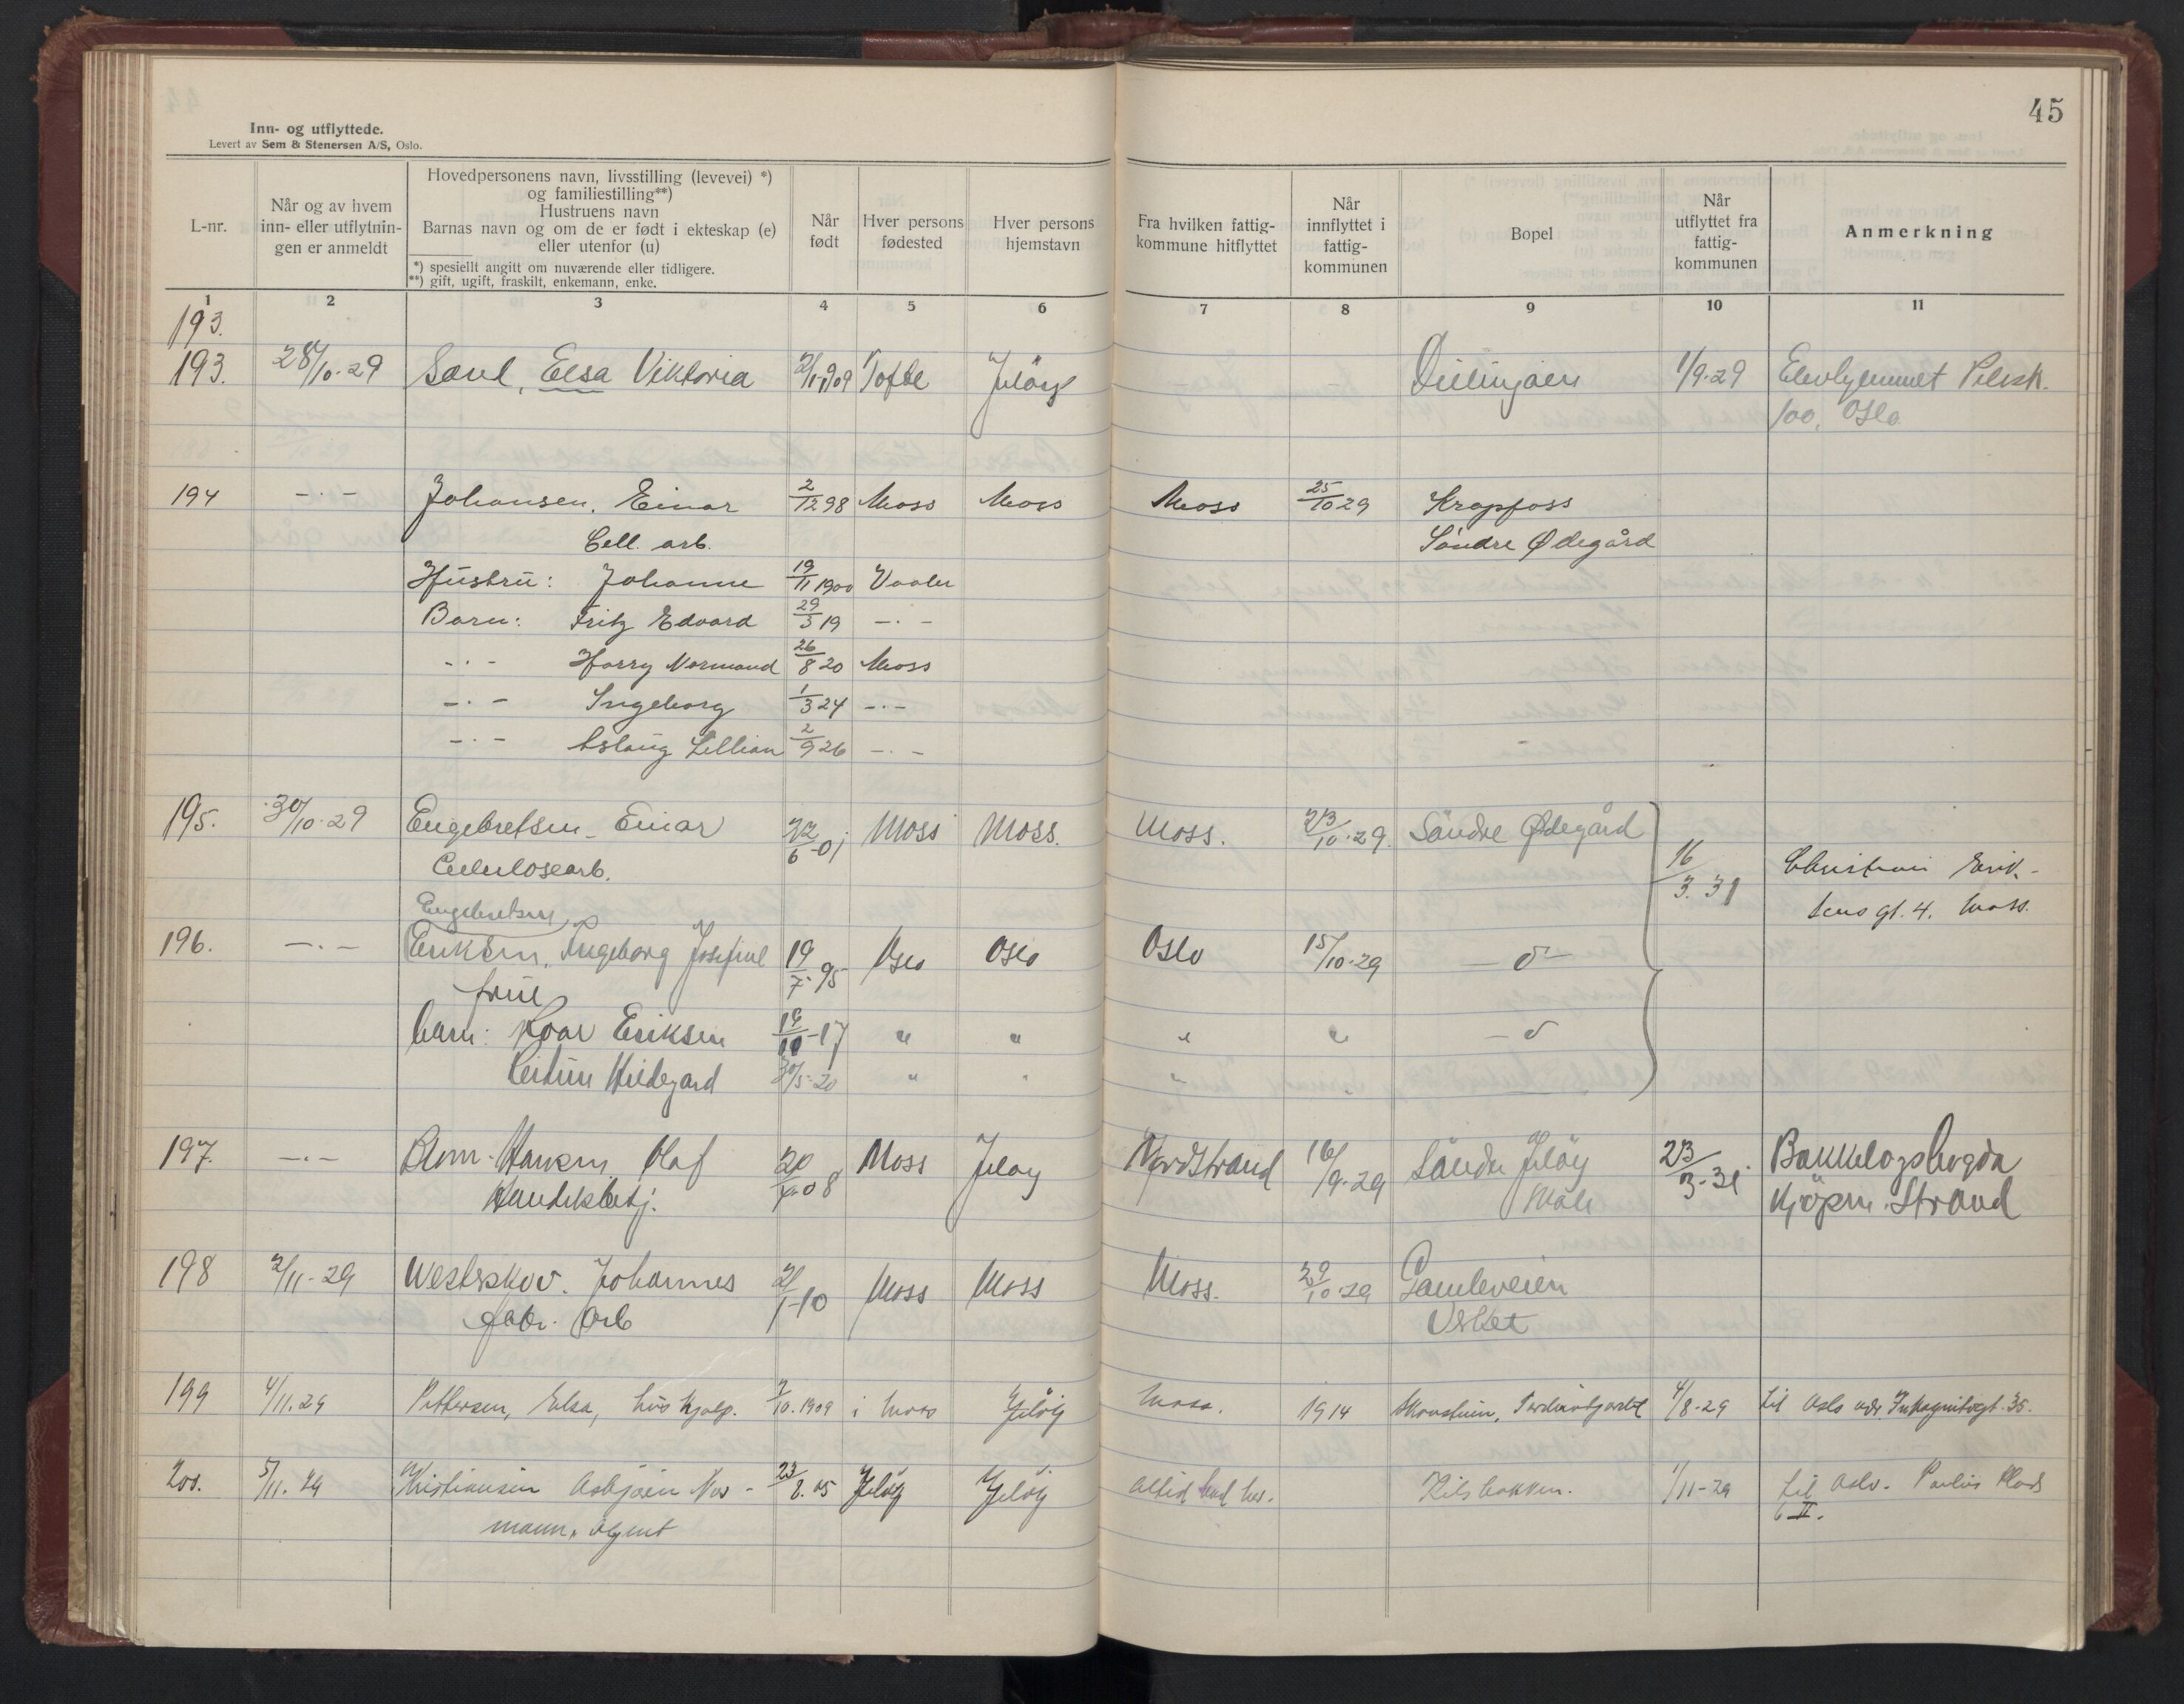 45
Inn- og utflyttede.
Levert av Sem & Stenersen A/S, Oslo.
L-nr.
Når og av hvem inn- eller utflytnin- gen er anmeldt
Hovedpersonens navn, livsstilling (levevei) *)
og familiestilling**)
Hustruens navn
Barnas navn og om de er født i ekteskap (e)
eller utenfor (u)
*) spesiellt angitt om nuværende eller tidligere.
**) gift, ugift, fraskilt, enkemann, enke.
Når født
Hver persons fødested
Hver persons hjemstavn
Fra hvilken fattig- kommune hitflyttet
Når innflyttet i fattig- kommunen
Bopel
Når utflyttet fra fattig- kommunen
Anmerkning
1 2 3 4 5 6 7 8 9 10 11
193.
193. 28/10-29 Saul, Elsa Viktoria 2/1 1909 Tofte Jeløy - - 1/9-29
100, Oslo
194 -·- Johansen, Einar 2/12 98 Moss Moss Moss 25/10 29 Krapfoss
Cell. arb. Söndre Ødegård
Hustru: Johanne 19/11 1900 Vaaler
Barn: Fritz Edvard 29/3 19 -·-
-·- Harry Normand 26/8 20 Moss
-·- Ingeborg 1/3 24 -·-
-·- Aslaug Lillian 2/9 26 -·-
195. 30/10-29 Engebretsen Einar 22/6-01 Moss Moss. Moss. 23/10-29. Söndre Ødegård
Cellulosearb. 16/3.31 Christian Erik-
sens gt. 4. Moss.
Engebretsen
196. -·- Eriksen, Ingeborg Josefine 19/7-95 Oslo Oslo Oslo 15/10-29 -o-
frue
barn: Roar Eriksen 19/10-17 " " " " -o-
Hildegard 30/5-20 " " "
197. -·- Blom-Hansen Olaf 20/9-08 Moss Jeløy Nordstrand 16/9-29 Söndre Jeløy 23/3-31 Bækkelagshøgda
Handelsbetj. Kjöpm. Strand
198 2/11-29 Westerskov. Johannes 21/1-10 Moss Moss Moss. 29/10-29 Gamleveien
fabr. Arb Verket
199 4/11.29 Pettersen, Elsa, hus hjelp. 7/10.1909 i Moss Jeløy Moss. 1914 4/8-29 til Oslo adr. Inkognitogt. 35.
200. 5/11.29 Kristiansen Asbjørn Nor- 23/8.05 Jeløy Jeløy Altid bod her. Kilsbakken. 1/11-29 til Oslo. Paulus Plads
mann, Agent 6 II.